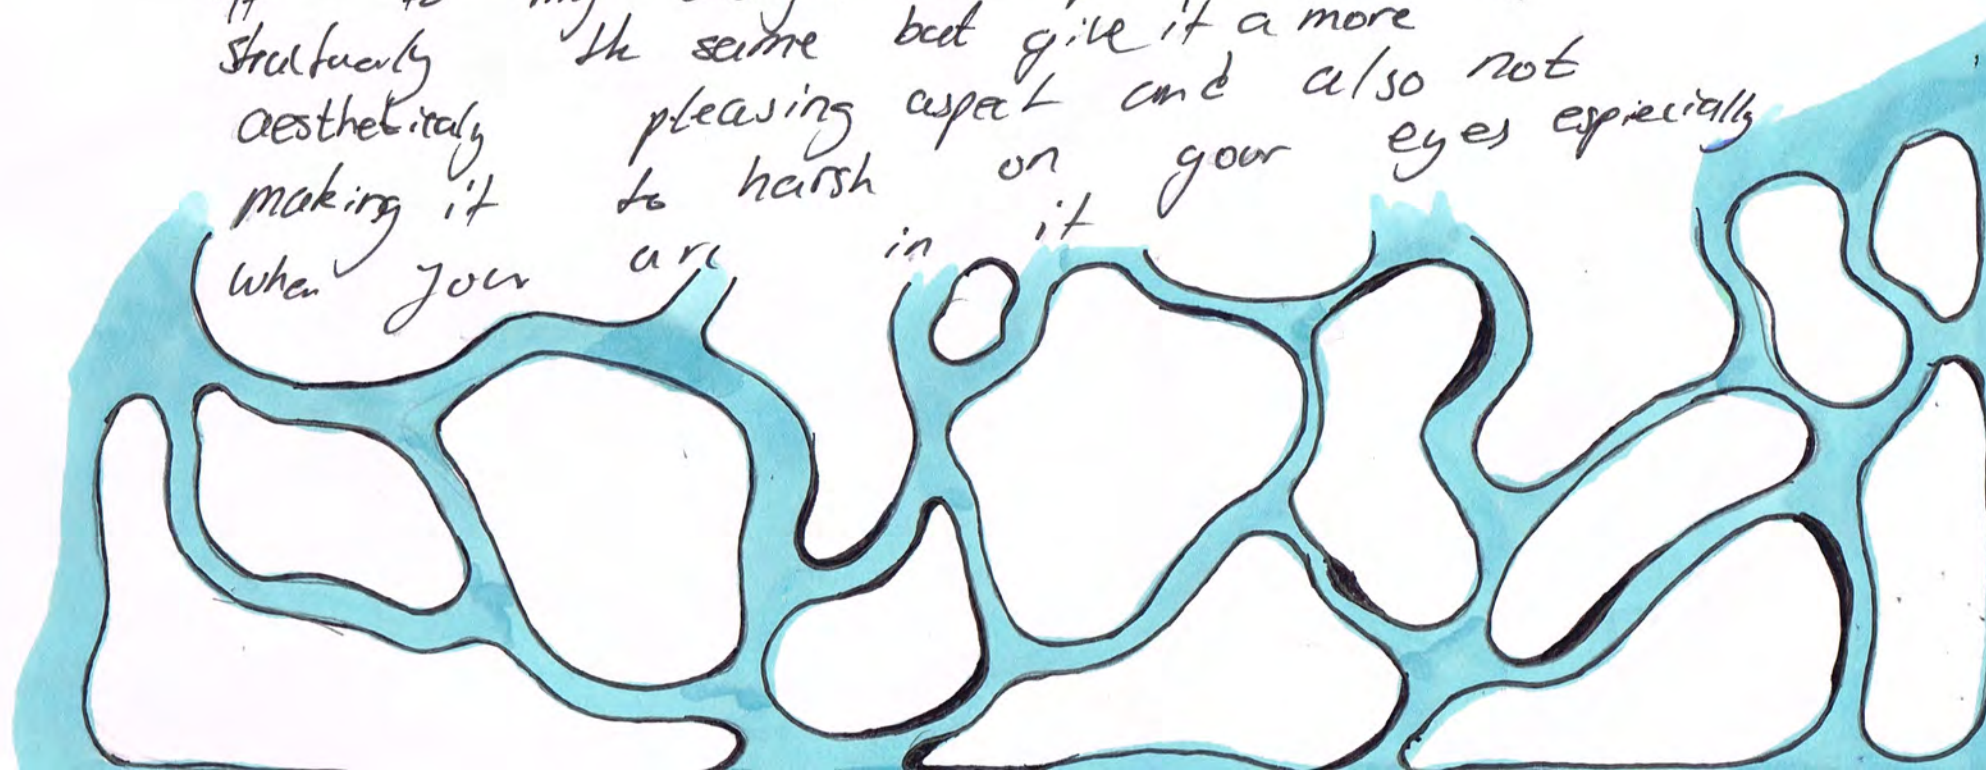 it to my
structuarly the same but give it a more
aesthetically pleasing aspect and also not
making it to harsh on your eyes espiecially
when your are in it